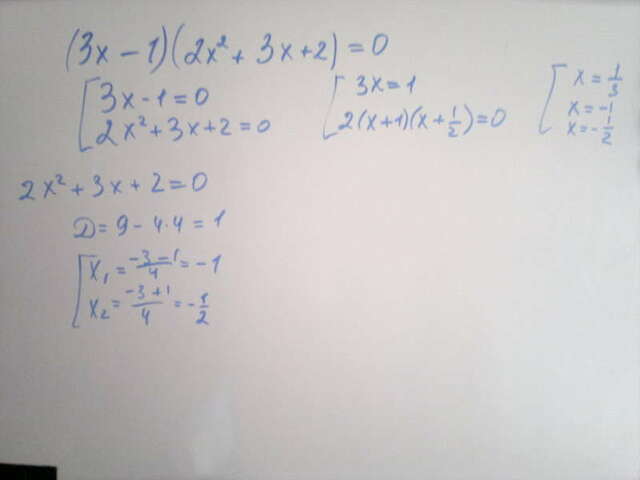 (3x - 1)(2x² + 3x + 2) = 0
[ 3x - 1 = 0
2x² + 3x + 2 = 0
[ 3x = 1
2(x + 1)(x + 1/2) = 0
[ x = 1/3
x = -1
x = -1/2
2x² + 3x + 2 = 0
D = 9 - 4·4 = 1
[ x₁ = (-3 - 1)/4 = -1
x₂ = (-3 + 1)/4 = -1/2